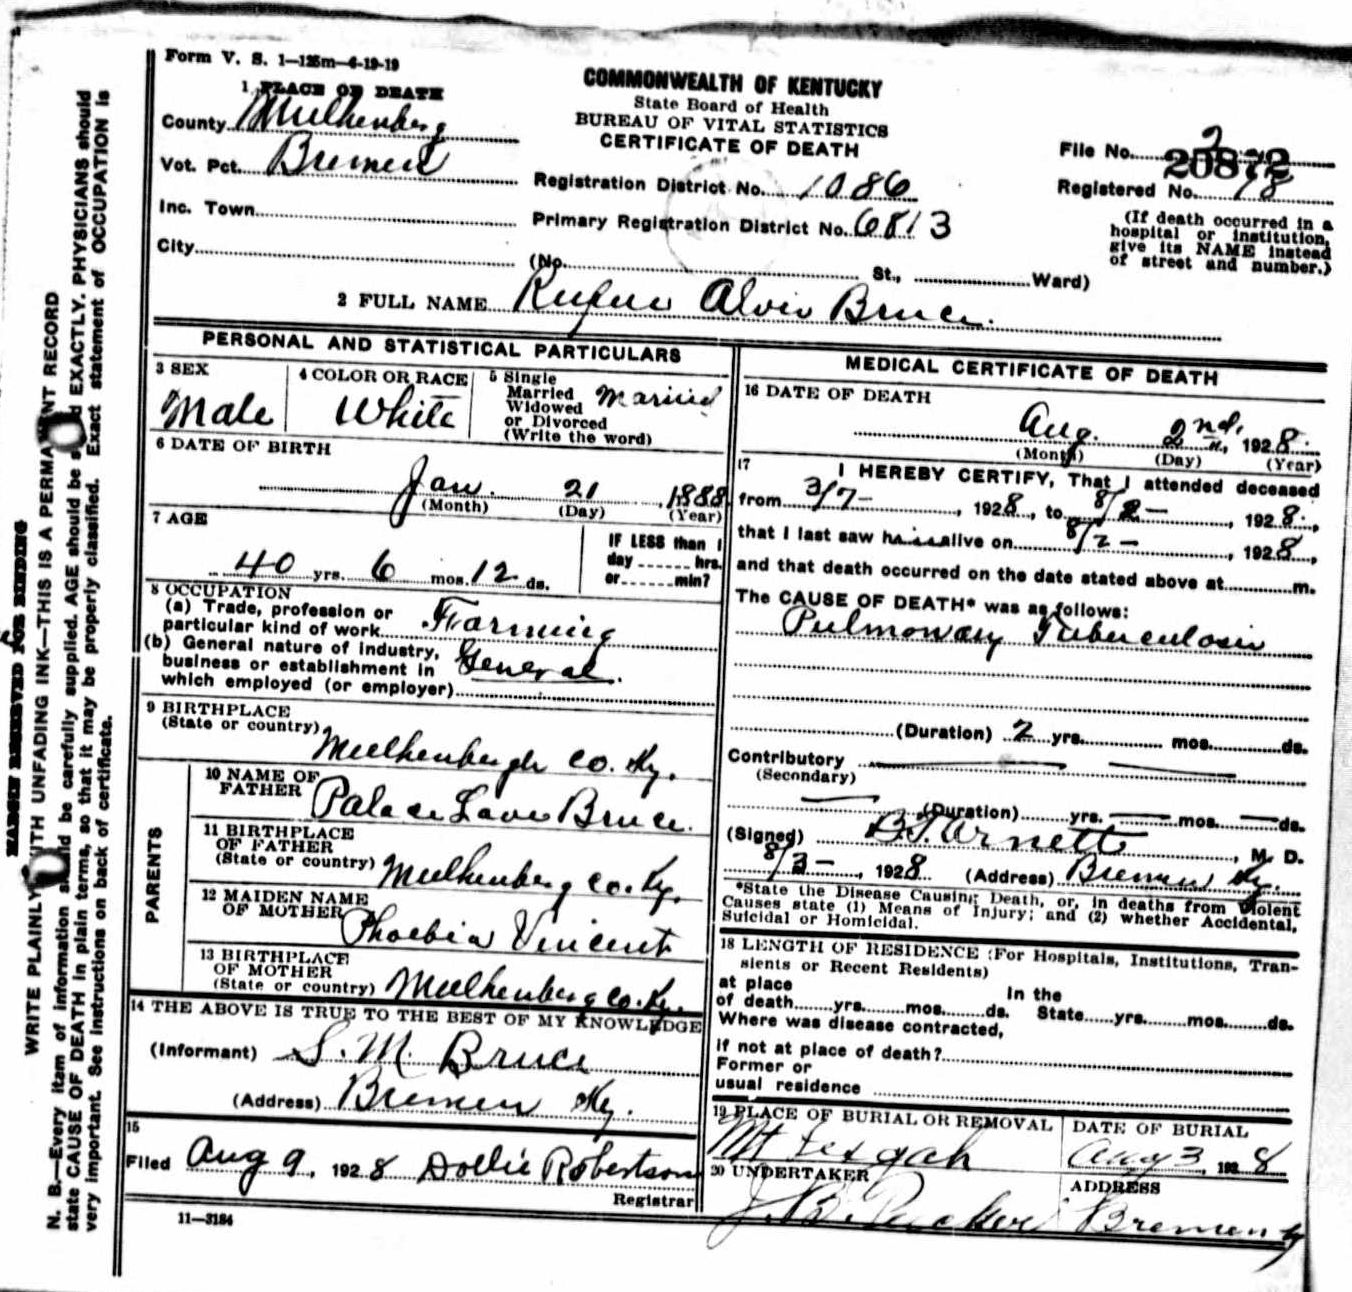 Form V. S. 1—125m—4-19-19
1 PLACE OF DEATH
County Muhlenberg
Vot. Pct. Bremen
Inc. Town
City
COMMONWEALTH OF KENTUCKY
State Board of Health
BUREAU OF VITAL STATISTICS
CERTIFICATE OF DEATH
Registration District No. 1086
Primary Registration District No. 6813
(No. St., Ward)
File No. 20872
Registered No. 78
(If death occurred in a
hospital or institution,
give its NAME instead
of street and number.)
2 FULL NAME Rufus Alvis Bruce.
PERSONAL AND STATISTICAL PARTICULARS
3 SEX
Male
4 COLOR OR RACE
White
5 Single
Married
Widowed
or Divorced
(Write the word)
Married
6 DATE OF BIRTH
Jan. 21, 1888
(Month) (Day) (Year)
7 AGE
40 yrs. 6 mos. 12 ds.
IF LESS than 1
day ...... hrs.
or ...... min?
8 OCCUPATION
(a) Trade, profession or
particular kind of work Farming
(b) General nature of industry,
business or establishment in
which employed (or employer)
General.
9 BIRTHPLACE
(State or country)
Muhlenbergh Co. Ky.
PARENTS
10 NAME OF
FATHER
Palace Bruce.
11 BIRTHPLACE
OF FATHER
(State or country) Muhlenberg Co. Ky.
12 MAIDEN NAME
OF MOTHER
Phoebia Vincent
13 BIRTHPLACE
OF MOTHER
(State or country) Muhlenberg Co. Ky.
14 THE ABOVE IS TRUE TO THE BEST OF MY KNOWLEDGE
(Informant) S. M. Bruce
(Address) Bremen Ky.
15
Filed Aug 9, 1928 Dollie Robertson
Registrar
11—3184
MEDICAL CERTIFICATE OF DEATH
16 DATE OF DEATH
Aug. 2nd, 1928.
(Month) (Day) (Year)
17
I HEREBY CERTIFY, That I attended deceased
from 3/7-, 1928, to 8/2-, 1928,
that I last saw him alive on 8/2-, 1928,
and that death occurred on the date stated above at m.
The CAUSE OF DEATH* was as follows:
Pulmonary Tuberculosis
(Duration) 2 yrs. mos. ds.
Contributory
(Secondary)
(Duration) yrs. mos. ds.
(Signed) B.T. Arnett, M. D.
8/3-, 1928 (Address) Bremen Ky.
*State the Disease Causing Death, or, in deaths from Violent
Causes state (1) Means of Injury; and (2) whether Accidental,
Suicidal or Homicidal.
18 LENGTH OF RESIDENCE (For Hospitals, Institutions, Tran-
sients or Recent Residents)
at place
of death yrs. mos. ds.
In the
State yrs. mos. ds.
Where was disease contracted,
if not at place of death?
Former or
usual residence
19 PLACE OF BURIAL OR REMOVAL
Mt Pisgah
DATE OF BURIAL
Aug 3, 1928
20 UNDERTAKER
J. B.
ADDRESS
Bremen Ky
MARGIN RESERVED FOR BINDING
WRITE PLAINLY WITH UNFADING INK—THIS IS A PERMANENT RECORD
N. B.—Every item of information should be carefully supplied. AGE should be stated EXACTLY. PHYSICIANS should
state CAUSE OF DEATH in plain terms, so that it may be properly classified. Exact statement of OCCUPATION is
very important. See instructions on back of certificate.